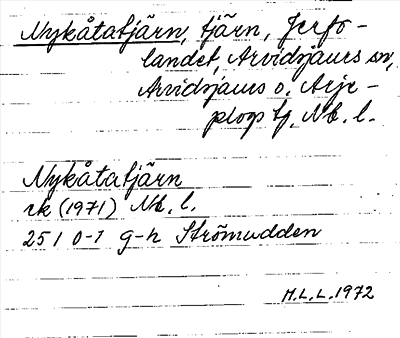 Nykåtatjärn, tjärn, Jerfo-
landet, Arvidsjaurs sn,
Arvidsjaurs o. Arje-
plogs tj. Nb. l.
Nykåtatjärn
rk (1971) Nb. l.
25 I 0-1 g-h Strömudden
M.L.L. 1972